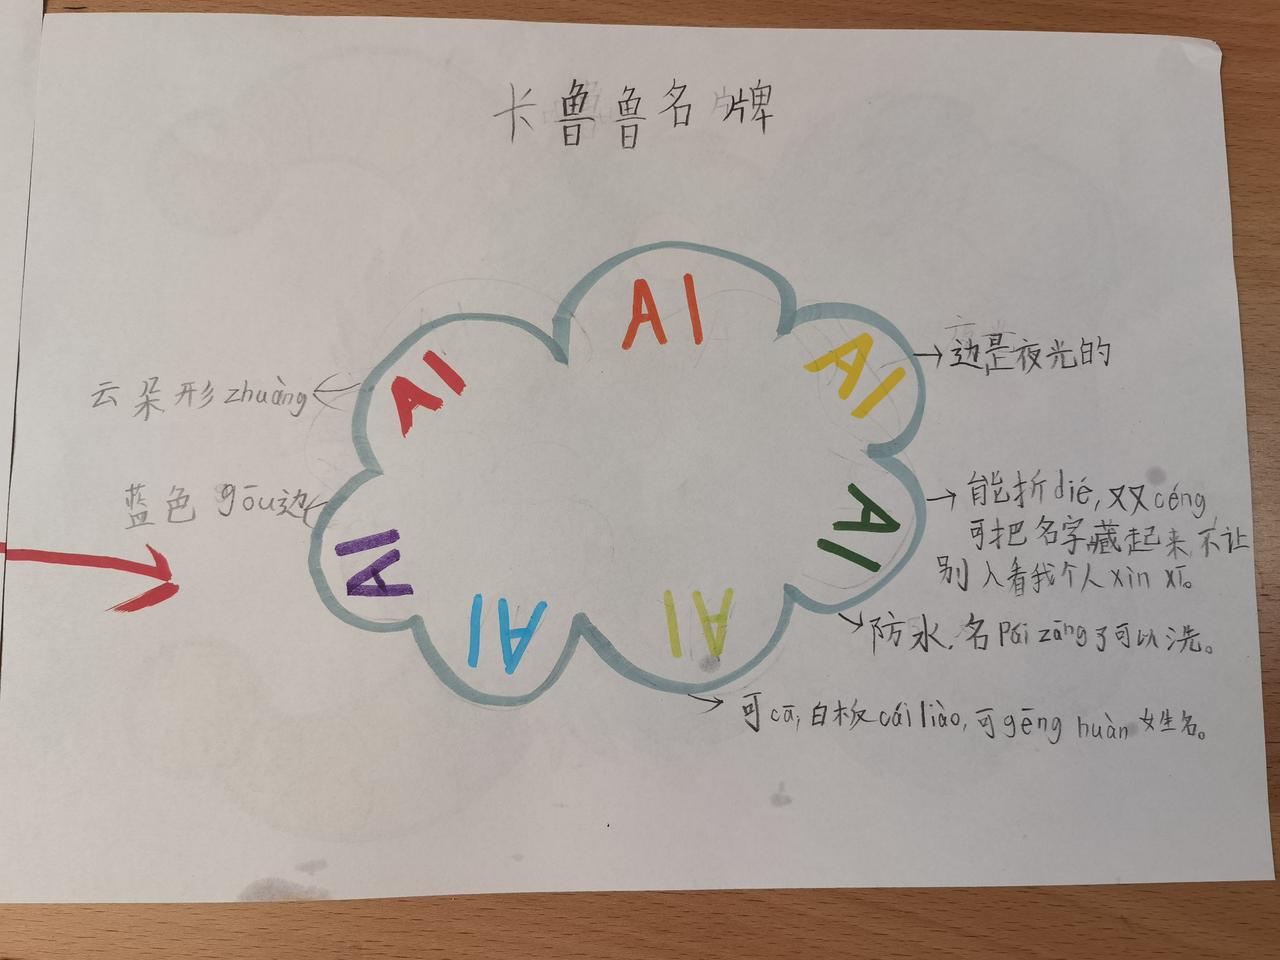 卡鲁鲁名牌
AI
AI
AI
AI
AI
AI
AI
云朵形zhuàng
蓝色 gōu边
边是夜光的
能折dié,双céng,
可把名字藏起来,不让
别人看我个人xìn xī。
防水,名pái zāng了可以洗。
可cā,白板cái liào,可gēng huàn姓名。